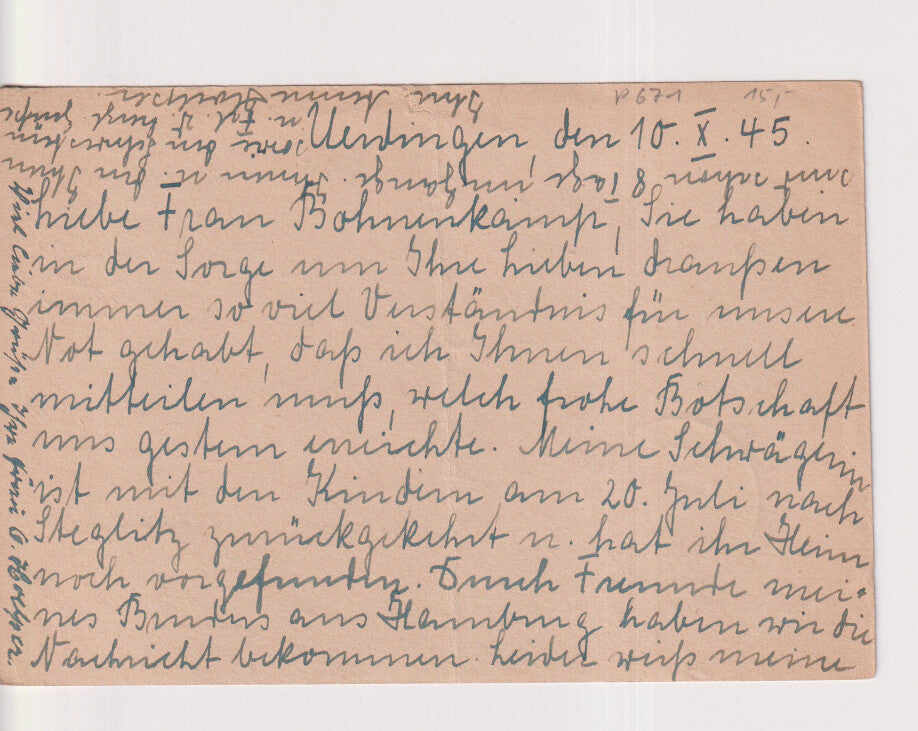 P 671 15,-
Uerdingen, den 10. X. 45.
Liebe Frau Bohnenkamp, Sie haben
in der Sorge um Ihre Lieben draußen
immer so viel Verständnis für unsere
Not gehabt, daß ich Ihnen schnell
mitteilen muß, welch frohe Botschaft
uns gestern erreichte. Meine Schwägerin
ist mit den Kindern am 20. Juli nach
Steglitz zurückgekehrt u. hat ihr Heim
noch vorgefunden. Durch Freunde mei-
nes Bruders aus Hamburg haben wir die
Nachricht bekommen. Leider weiß meine
schon 8 Tage Ihnen u. den Ihren
u. Frl. herzl. Grüße
Ihre
Viel liebe Grüße Ihre